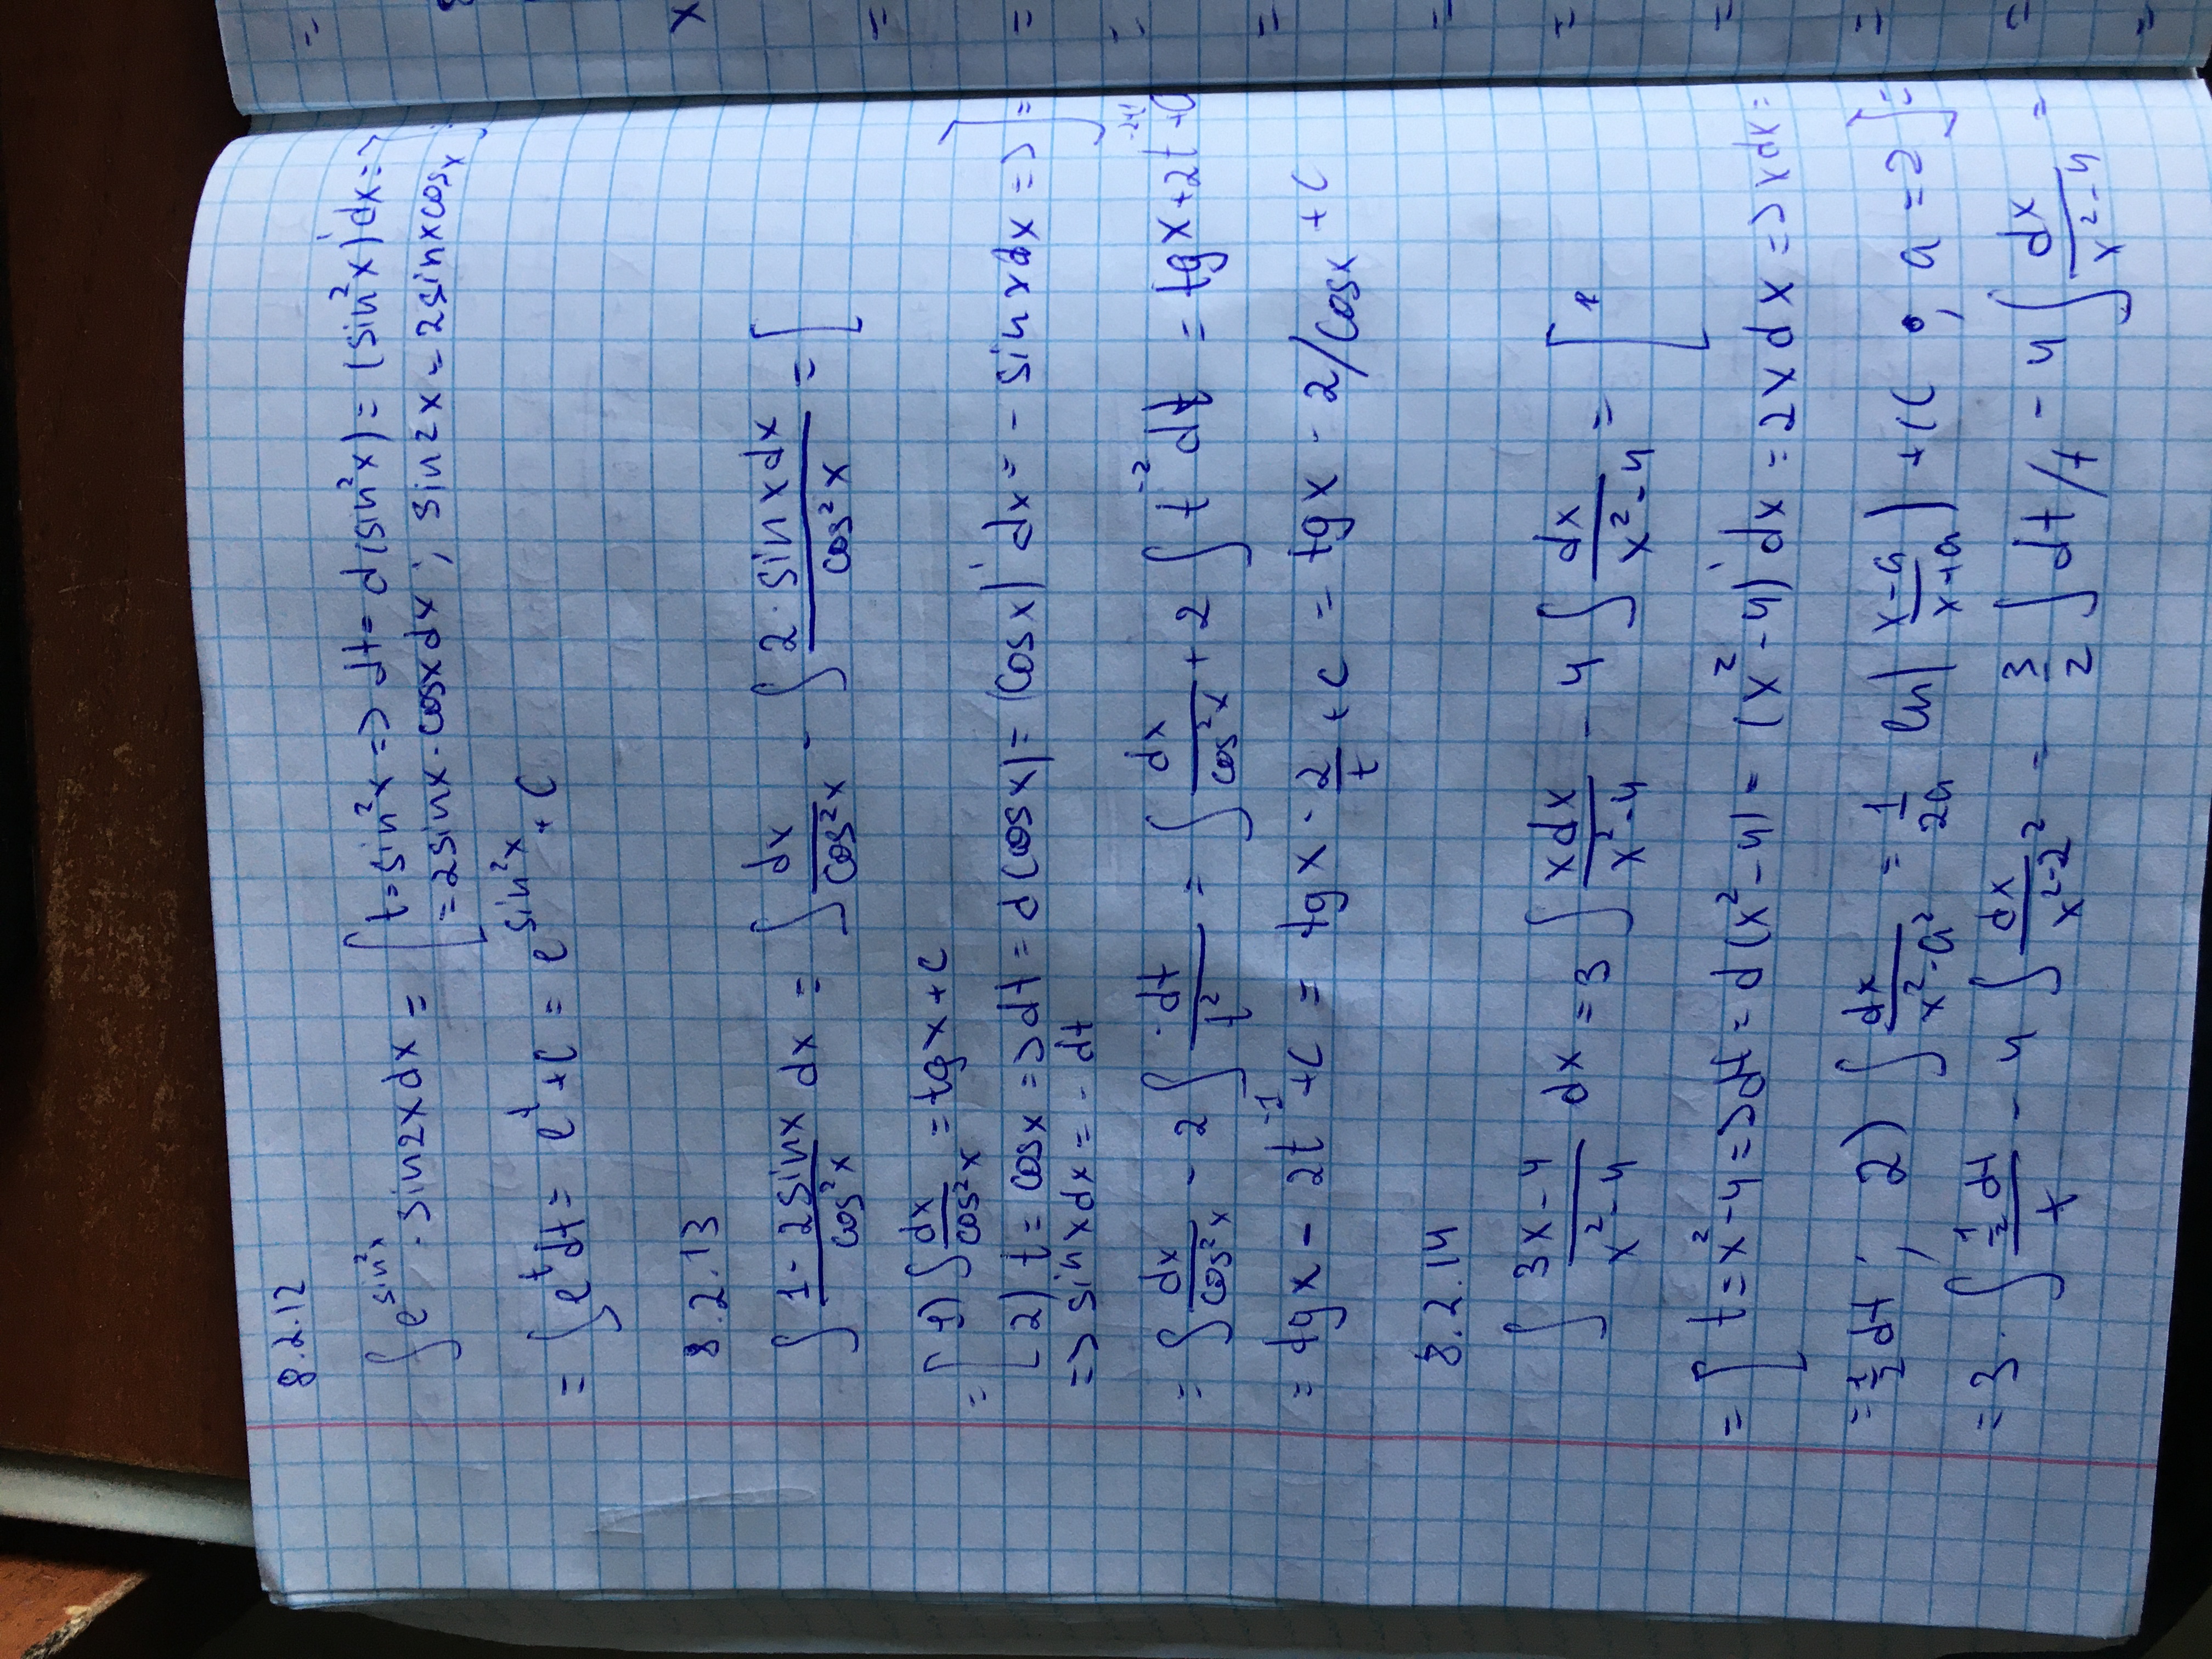 8.2.12
∫ e^(sin²x) · sin2x dx = [ t = sin²x => dt = d(sin²x) = (sin²x)' dx =>
= 2sinx · cosx dx ; sin2x = 2sinxcosx ] =
= ∫ e^t dt = e^t + C = e^(sin²x) + C
8.2.13
∫ (1 - 2sinx)/(cos²x) dx = ∫ dx/(cos²x) - ∫ (2 · sinxdx)/(cos²x) = [
= [ 1) ∫ dx/(cos²x) = tgx + C
2) t = cosx => dt = d(cosx) = (cosx)' dx = - sinxdx => ] =
=> sinxdx = - dt
= ∫ dx/(cos²x) - 2 ∫ (-dt)/(t²) = ∫ dx/(cos²x) + 2 ∫ t^(-2) dt = tgx + 2t^(-2+1) + C
= tgx - 2t^(-1) + C = tgx - 2/t + C = tgx - 2/cosx + C
8.2.14
∫ (3x - 4)/(x² - 4) dx = 3 ∫ (xdx)/(x² - 4) - 4 ∫ dx/(x² - 4) = [
= [ t = x² - 4 => dt = d(x² - 4) = (x² - 4)' dx = 2xdx => xdx =
= 1/2 dt ; 2) ∫ dx/(x² - a²) = 1/(2a) ln| (x-a)/(x+a) | + C ; a = 2 ] =
= 3 · ∫ (1/2 dt)/t - 4 ∫ dx/(x² - 2²) = 3/2 ∫ dt/t - 4 ∫ dx/(x² - 4) =